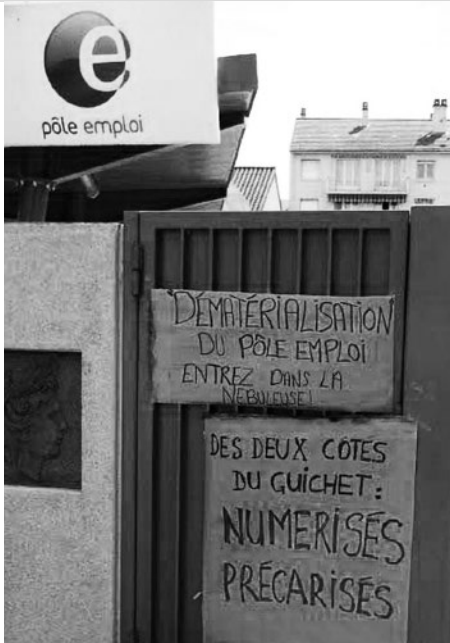 e
pôle emploi
DÉMATÉRIALISATION
DU PÔLE EMPLOI
ENTREZ DANS LA
NÉBULEUSE!
DES DEUX CÔTÉS
DU GUICHET:
NUMERISÉS
PRÉCARISÉS